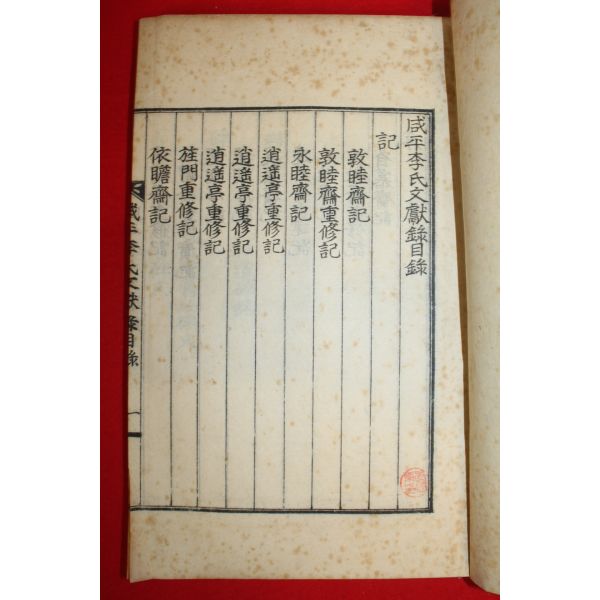 咸平李氏文獻錄目錄
記
敦睦齋記
敦睦齋重修記
永睦齋記
逍遙亭記
逍遙亭重修記
逍遙亭重修記
旌門重修記
依瞻齋記
咸平李氏文獻錄目錄
一